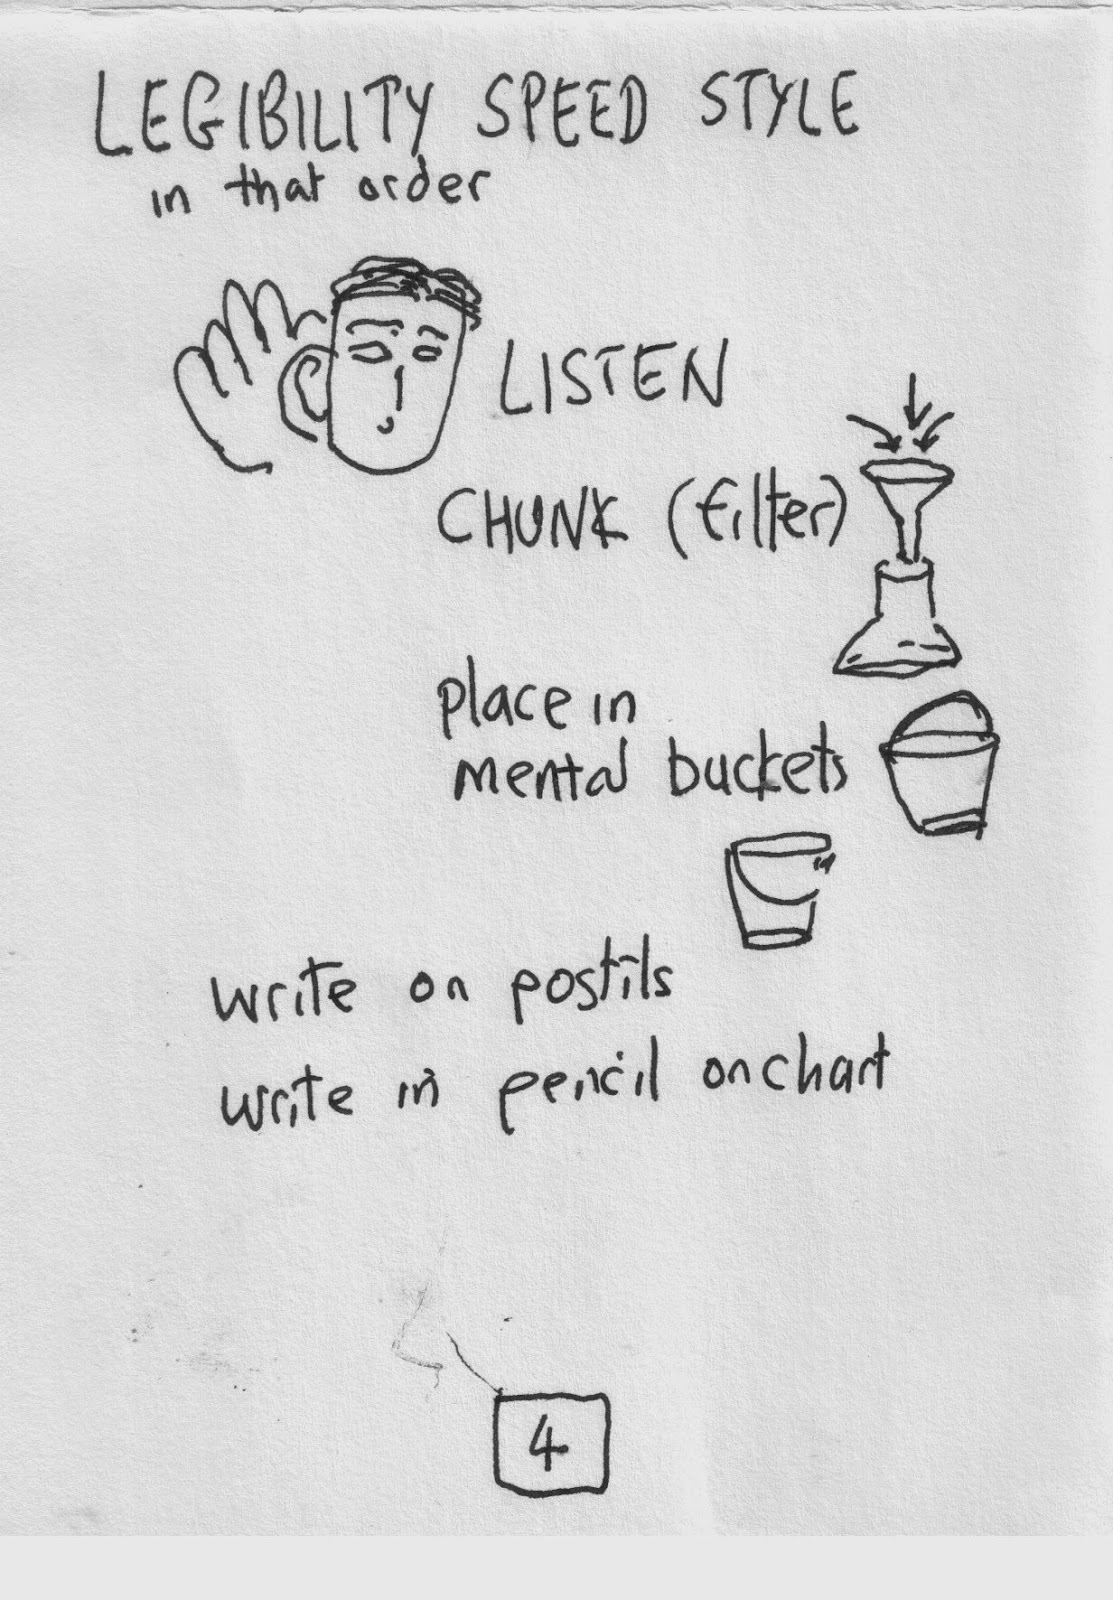 LEGIBILITY SPEED STYLE
in that order
LISTEN
CHUNK (filter)
place in
mental buckets
write on postits
write in pencil on chart
4